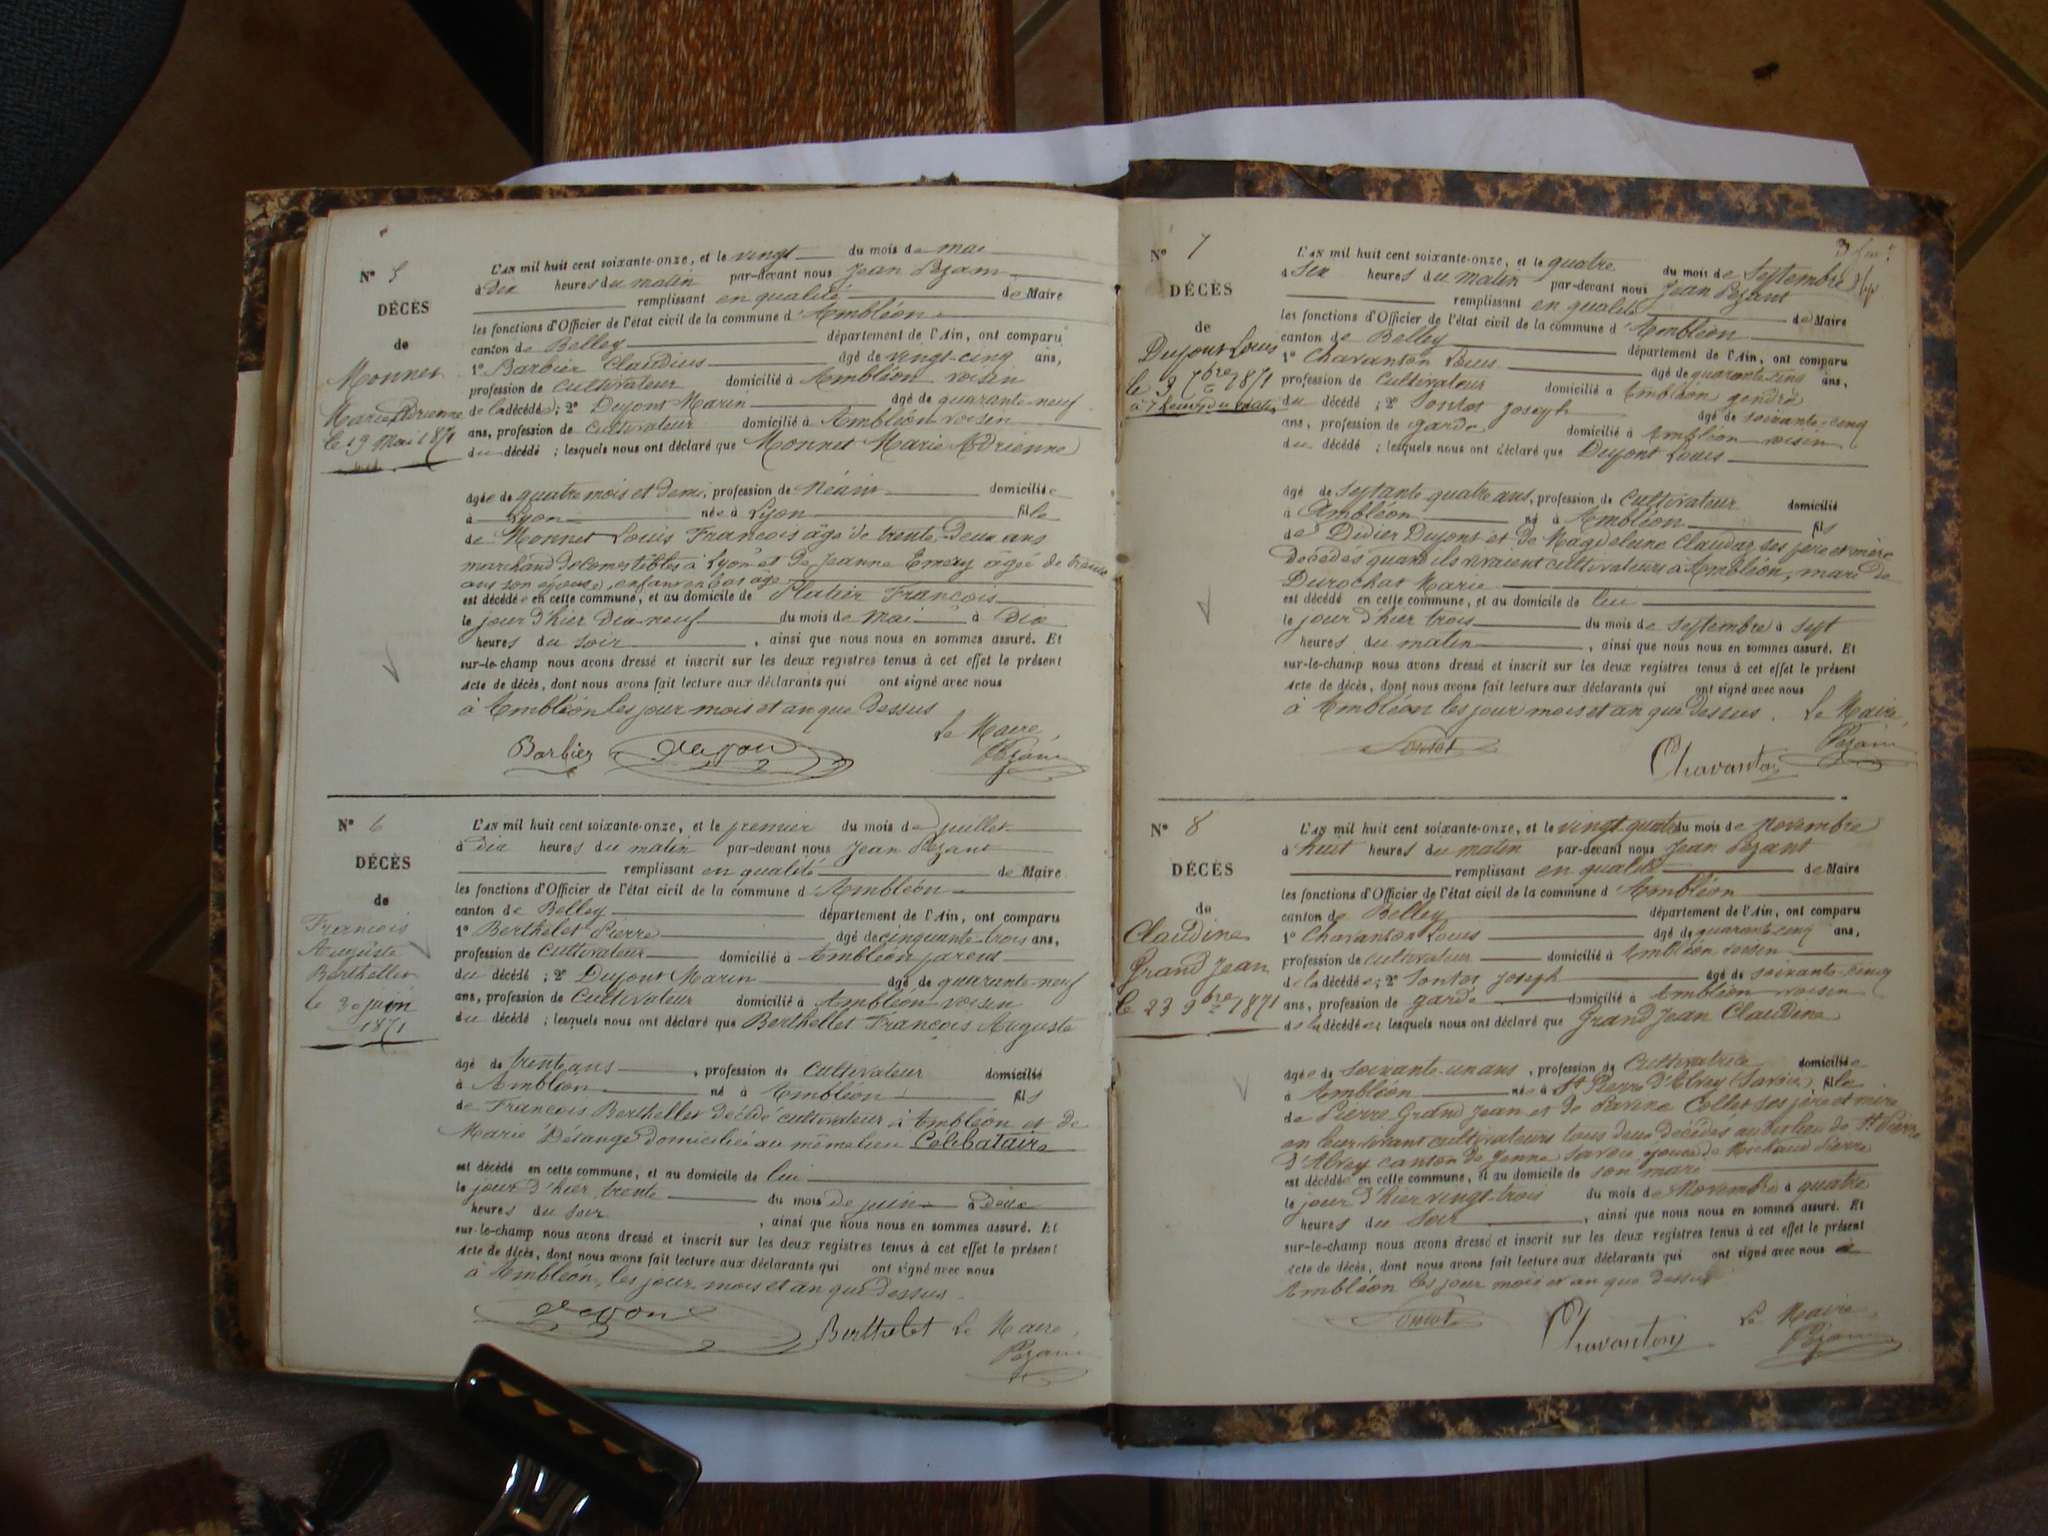 N° 5
DÉCÈS
de
Monnet
Marie Adrienne
le 19 Mai 1871
L'AN mil huit cent soixante-onze, et le vingt du mois de mai
à dix heures du matin par-devant nous Jean Pezant
remplissant en qualité de Maire
les fonctions d'Officier de l'état civil de la commune d'Ambléon
canton de Belley département de l'Ain, ont comparu
1° Barbier Claudius âgé de vingt-cinq ans,
profession de cultivateur domicilié à Ambléon voisin
de la décédée ; 2° Dupont Marin âgé de quarante-neuf
ans, profession de cultivateur domicilié à Ambléon voisin
du décédé ; lesquels nous ont déclaré que Monnet Marie Adrienne
âgée de quatre mois et demi, profession de Néant domiciliée
à Lyon née à Lyon fille
de Monnet Louis François âgé de trente-deux ans
marchand de comestibles à Lyon et de Jeanne Emery âgée de trente
ans son épouse, enfant en bas âge
est décédée en cette commune, et au domicile de Platier François
le jour d'hier dix-neuf du mois de Mai à dix
heures du soir, ainsi que nous nous en sommes assuré. Et
sur-le-champ nous avons dressé et inscrit sur les deux registres tenus à cet effet le présent
acte de décès, dont nous avons fait lecture aux déclarants qui ont signé avec nous
à Ambléon les jour mois et an que dessus
Le Maire
Barbier Pezant
N° 6
DÉCÈS
de
François
Auguste
Berthellet
le 30 juin
1871
L'AN mil huit cent soixante-onze, et le premier du mois de juillet
à dix heures du matin par-devant nous Jean Pezant
remplissant en qualité de Maire
les fonctions d'Officier de l'état civil de la commune d'Ambléon
canton de Belley département de l'Ain, ont comparu
1° Berthelet Pierre âgé de cinquante-trois ans,
profession de cultivateur domicilié à Ambléon parent
du décédé ; 2° Dupont Marin âgé de quarante-neuf
ans, profession de Cultivateur domicilié à Ambléon voisin
du décédé ; lesquels nous ont déclaré que Berthellet François Auguste
âgé de trente ans, profession de cultivateur domicilié
à Ambléon né à Ambléon fils
de François Berthellet décédé cultivateur à Ambléon et de
Marie Désange domiciliée au même lieu Célibataire
est décédé en cette commune, et au domicile de lui
le jour d'hier trente du mois de juin à deux
heures du soir, ainsi que nous nous en sommes assuré. Et
sur-le-champ nous avons dressé et inscrit sur les deux registres tenus à cet effet le présent
acte de décès, dont nous avons fait lecture aux déclarants qui ont signé avec nous
à Ambléon, les jour, mois et an que dessus.
Berthelet Le Maire,
Pezant
N° 7
DÉCÈS
de
Dupont Louis
le 3 7bre 1871
à 7 heures du matin
L'AN mil huit cent soixante-onze, et le quatre du mois de Septembre
à six heures du matin par-devant nous Jean Pezant
remplissant en qualité de Maire
les fonctions d'Officier de l'état civil de la commune d'Ambléon
canton de Belley département de l'Ain, ont comparu
1° Chavanton Louis âgé de quarante-cinq ans,
profession de Cultivateur domicilié à Ambléon gendre
du décédé ; 2° Sontot Joseph âgé de soixante-cinq
ans, profession de garde domicilié à Ambléon voisin
du décédé ; lesquels nous ont déclaré que Dupont Louis
âgé de septante quatre ans, profession de Cultivateur domicilié
à Ambléon né à Ambléon fils
de Didier Dupont et de Magdeleine Claudaz ses père et mère
décédés quand ils vivaient cultivateurs à Ambléon, mari de
Durochat Marie
est décédé en cette commune, et au domicile de lui
le jour d'hier trois du mois de septembre à sept
heures du matin, ainsi que nous nous en sommes assuré. Et
sur-le-champ nous avons dressé et inscrit sur les deux registres tenus à cet effet le présent
acte de décès, dont nous avons fait lecture aux déclarants qui ont signé avec nous
à Ambléon les jour mois et an que dessus. Le Maire,
Sontot Chavanton Pezant
N° 8
DÉCÈS
de
Claudine
Grand Jean
le 23 9bre 1871
L'AN mil huit cent soixante-onze, et le vingt quatre du mois de Novembre
à huit heures du matin par-devant nous Jean Pezant
remplissant en qualité de Maire
les fonctions d'Officier de l'état civil de la commune d'Ambléon
canton de Belley département de l'Ain, ont comparu
1° Chavanton Louis âgé de quarante-cinq ans,
profession de cultivateur domicilié à Ambléon voisin
de la décédée ; 2° Sontot Joseph âgé de soixante-cinq
ans, profession de garde domicilié à Ambléon voisin
de la décédée lesquels nous ont déclaré que Grand Jean Claudine
âgée de soixante-un ans, profession de Cultivatrice domiciliée
à Ambléon née à St Pierre d'Alvey (Savoie), fille
de Pierre Grand Jean et de Pavine Collet ses père et mère
en leur vivant cultivateurs tous deux décédés au lieu de St Pierre
d'Alvey canton de Yenne Savoie épouse de Michaud Pierre
est décédée en cette commune, et au domicile de son mari
le jour d'hier vingt-trois du mois de Novembre à quatre
heures du soir, ainsi que nous nous en sommes assuré. Et
sur-le-champ nous avons dressé et inscrit sur les deux registres tenus à cet effet le présent
acte de décès, dont nous avons fait lecture aux déclarants qui ont signé avec nous à
Ambléon les jour mois et an que dessus
Sontot Chavanton Le Maire,
Pezant